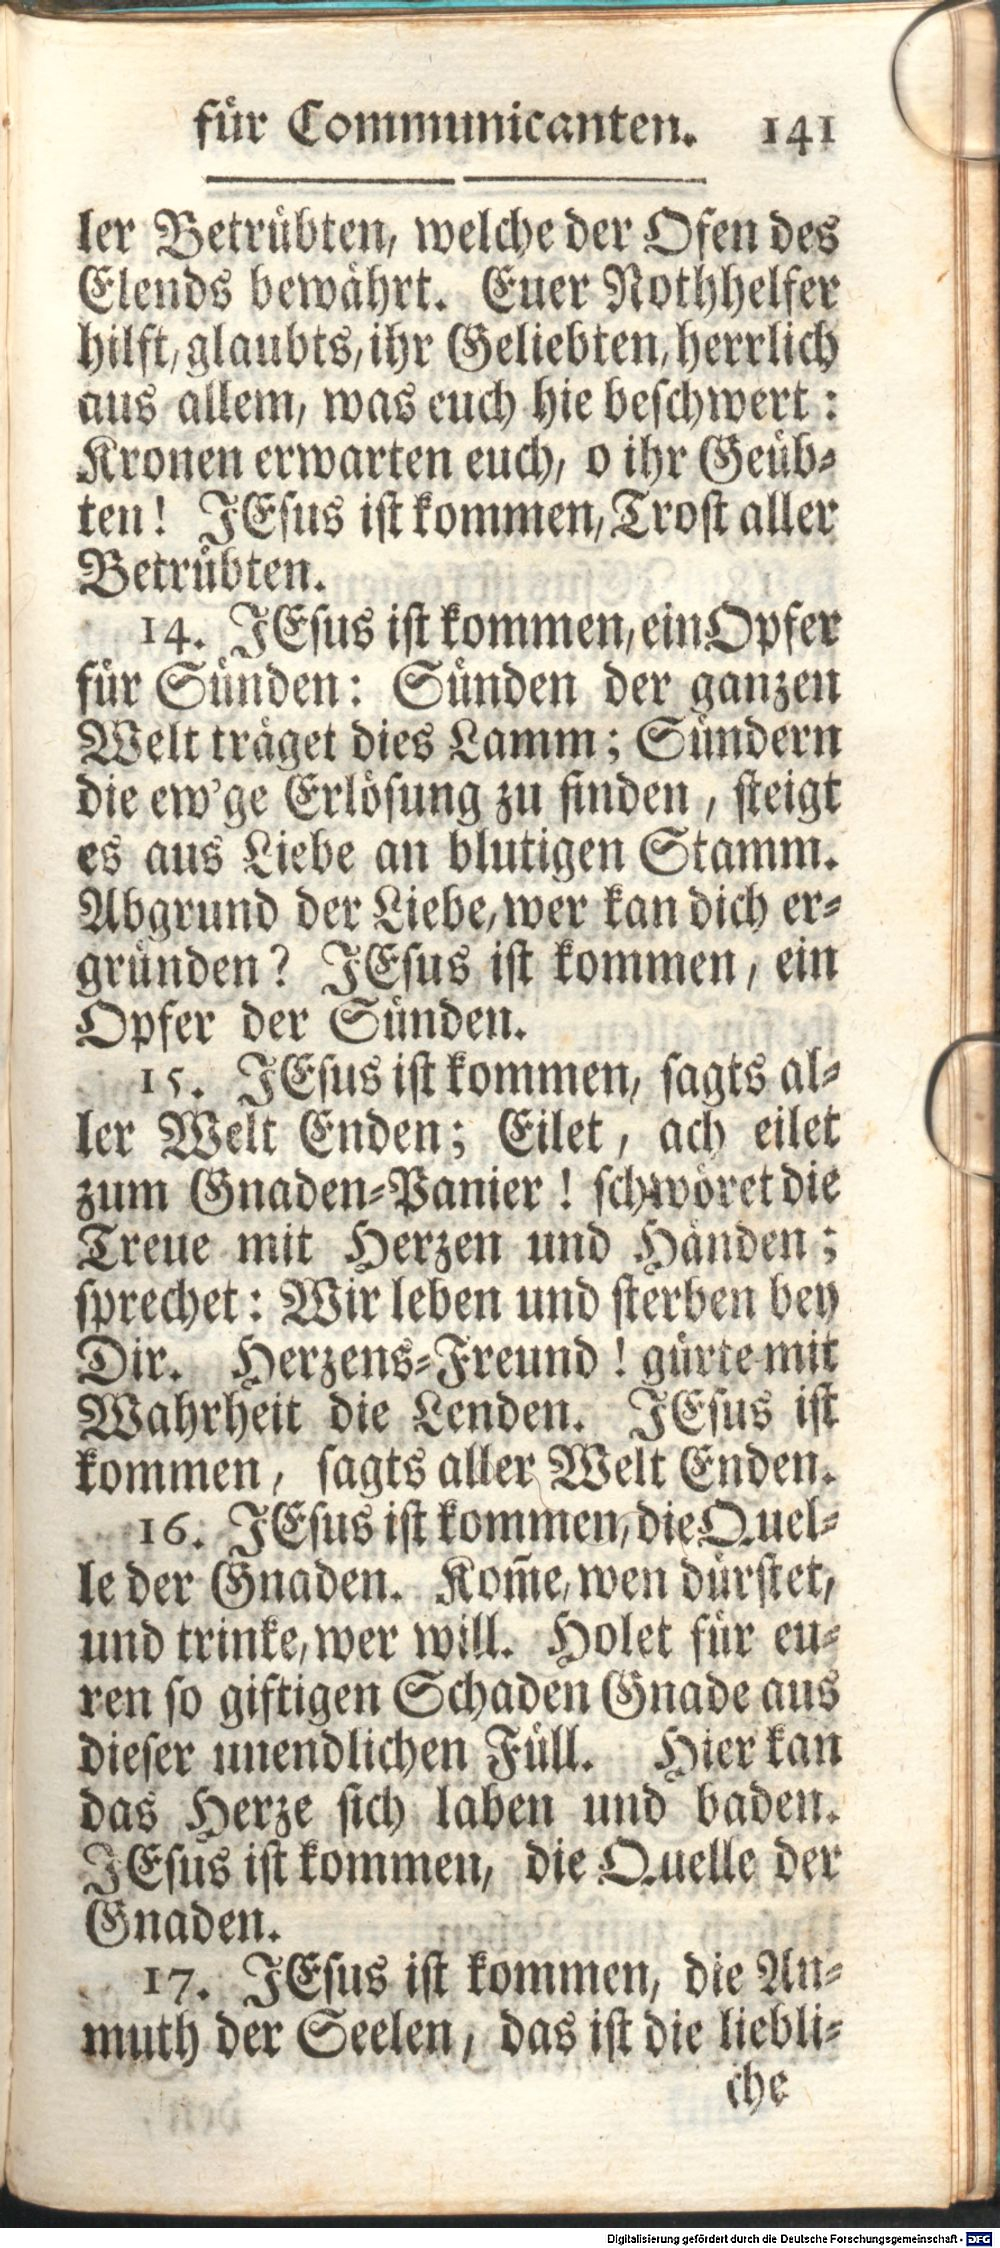 für Communicanten. 141
ler Betrübten, welche der Ofen des
Elends bewährt. Euer Nothhelfer
hilft, glaubts, ihr Geliebten, herrlich
aus allem, was euch hie beſchwert:
Kronen erwarten euch, o ihr Geüb-
ten! JEſus iſt kommen, Troſt aller
Betrübten.
14. JEſus iſt kommen, ein Opfer
für Sünden: Sünden der ganzen
Welt träget dies Lamm; Sündern
die ew'ge Erlöſung zu finden, ſteigt
es aus Liebe an blutigen Stamm.
Abgrund der Liebe, wer kan dich er-
gründen? JEſus iſt kommen, ein
Opfer der Sünden.
15. JEſus iſt kommen, ſagts al-
ler Welt Enden; Eilet, ach eilet
zum Gnaden-Panier! ſchwöret die
Treue mit Herzen und Händen;
ſprechet: Wir leben und ſterben bey
Dir. Herzens-Freund! gürte mit
Wahrheit die Lenden. JEſus iſt
kommen, ſagts aller Welt Enden.
16. JEſus iſt kommen, die Quel-
le der Gnaden. Kom̃e, wen dürſtet,
und trinke, wer will. Holet für eu-
ren ſo giftigen Schaden Gnade aus
dieſer unendlichen Füll. Hier kan
das Herze ſich laben und baden.
JEſus iſt kommen, die Quelle der
Gnaden.
17. JEſus iſt kommen, die An-
muth der Seelen, das iſt die liebli-
che
Digitalisierung gefördert durch die Deutsche Forschungsgemeinschaft - DFG